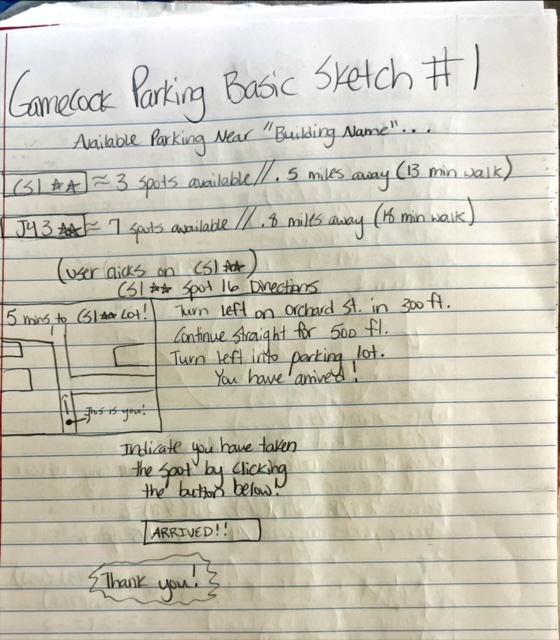 Gamecock Parking Basic Sketch #1
Available Parking Near "Building Name"...
CS1 ☆☆ ≈ 3 spots available // .5 miles away (13 min walk)
J43 ☆☆ ≈ 7 spots available // .8 miles away (18 min walk)
(user clicks on CS1 ☆☆)
CS1 ☆☆ Spot 16 Directions
5 mins to CS1 ☆☆ Lot!
This is you!
Turn left on orchard St. in 300 ft.
Continue straight for 500 ft.
Turn left into parking lot.
You have arrived!
Indicate you have taken
the spot by clicking
the button below!
ARRIVED!!
Thank you!